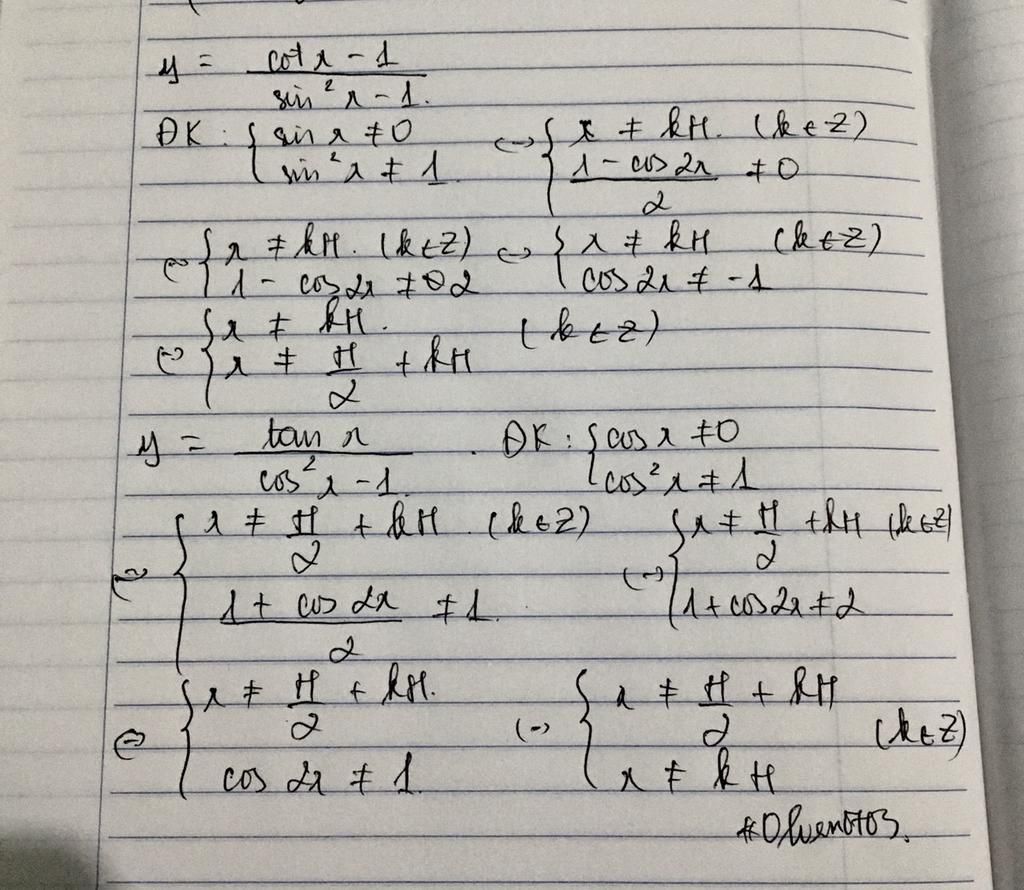 y = (cot x - 1)/(sin² x - 1.)
ĐK: { sin x ≠ 0 ; sin² x ≠ 1. ⇔ { x ≠ kπ. (k ∈ Z) ; (1 - cos 2x)/2 ≠ 0
⇔ { x ≠ kπ. (k ∈ Z) ; 1 - cos 2x ≠ 2 ⇔ { x ≠ kπ (k ∈ Z) ; cos 2x ≠ -1
⇔ { x ≠ kπ. ; x ≠ π/2 + kπ (k ∈ Z)
y = tan x/(cos² x - 1.) . ĐK: { cos x ≠ 0 ; cos² x ≠ 1
⇔ { x ≠ π/2 + kπ. (k ∈ Z) ; (1 + cos 2x)/2 ≠ 1. ⇔ { x ≠ π/2 + kπ (k ∈ Z) ; 1 + cos 2x ≠ 2
⇔ { x ≠ π/2 + kπ. ; cos 2x ≠ 1. ⇔ { x ≠ π/2 + kπ ; x ≠ kπ (k ∈ Z)